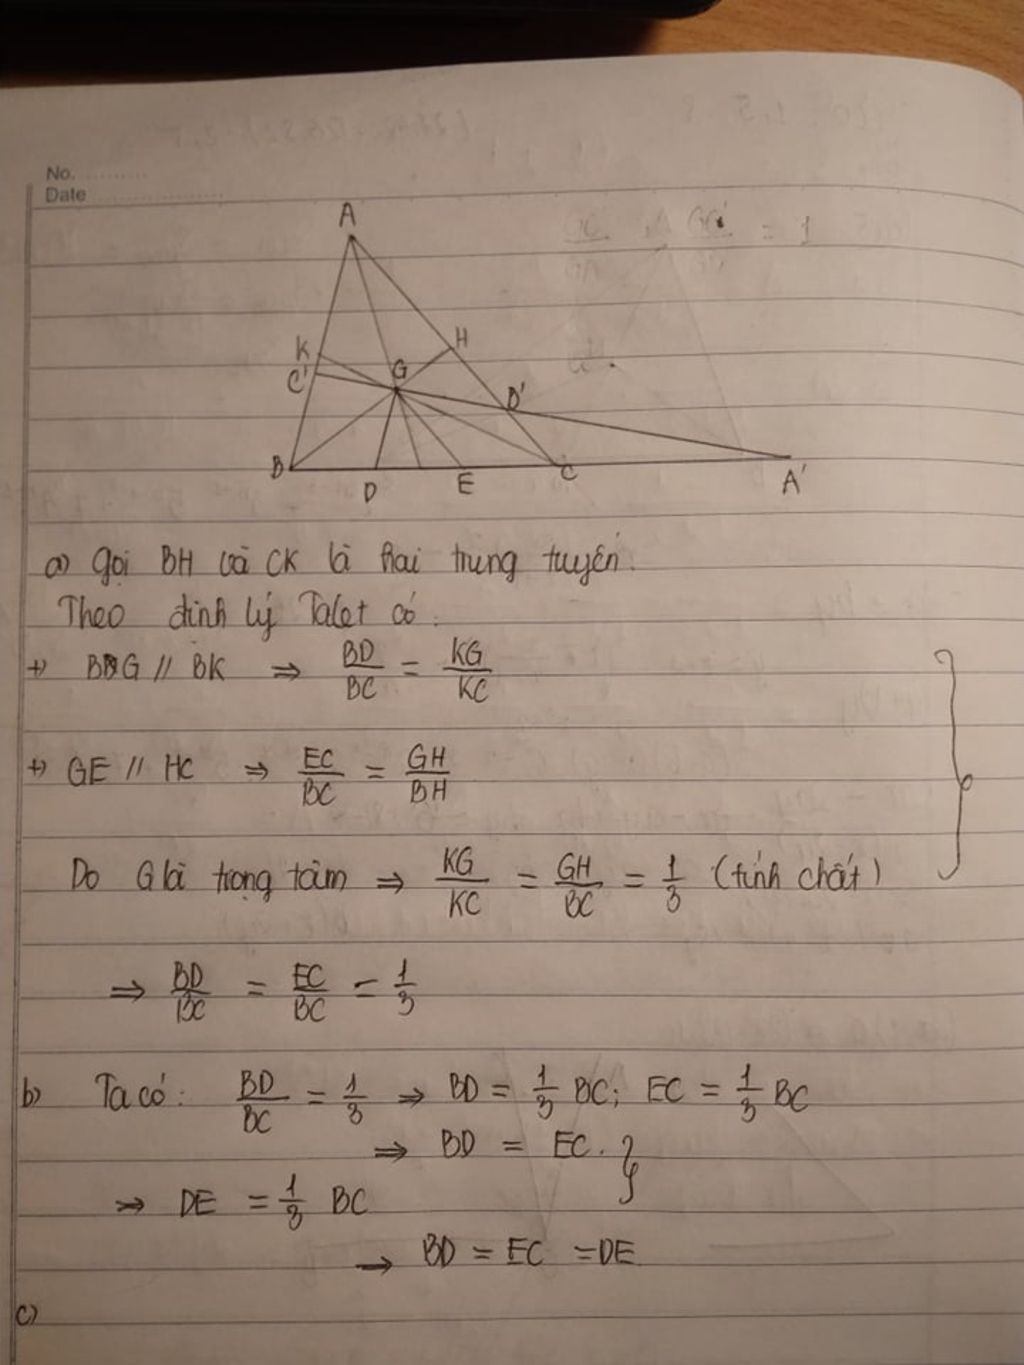 No. ..........
Date ....................
A
K
H
C'
G
D'
B
D
E
C
A'
a) Gọi BH và CK là hai trung tuyến.
Theo định lý Talet có:
+) DG // BK ⇒ BD/BC = KG/KC
+) GE // HC ⇒ EC/BC = GH/BH
Do G là trọng tâm ⇒ KG/KC = GH/BC = 1/3 (tính chất)
⇒ BD/BC = EC/BC = 1/3
b) Ta có: BD/BC = 1/3 ⇒ BD = 1/3 BC; EC = 1/3 BC
⇒ BD = EC.
⇒ DE = 1/3 BC
→ BD = EC = DE
c)